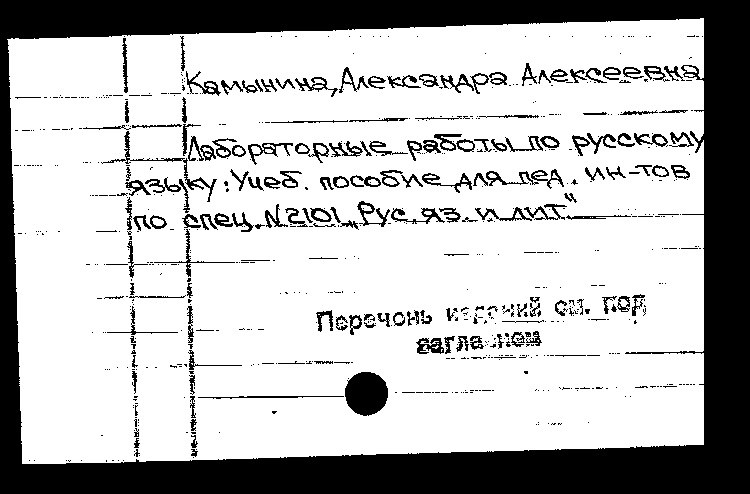 Камынина, Александра Алексеевна
Лабораторные работы по русскому
языку: Учеб. пособие для пед. ин-тов
по спец. №2101 „Рус. яз. и лит."
Перечонь изданий см. под
заглавием